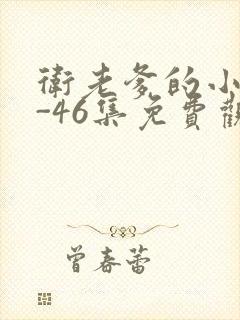 衛老爹的小
-46集免費觀
曾春蕾